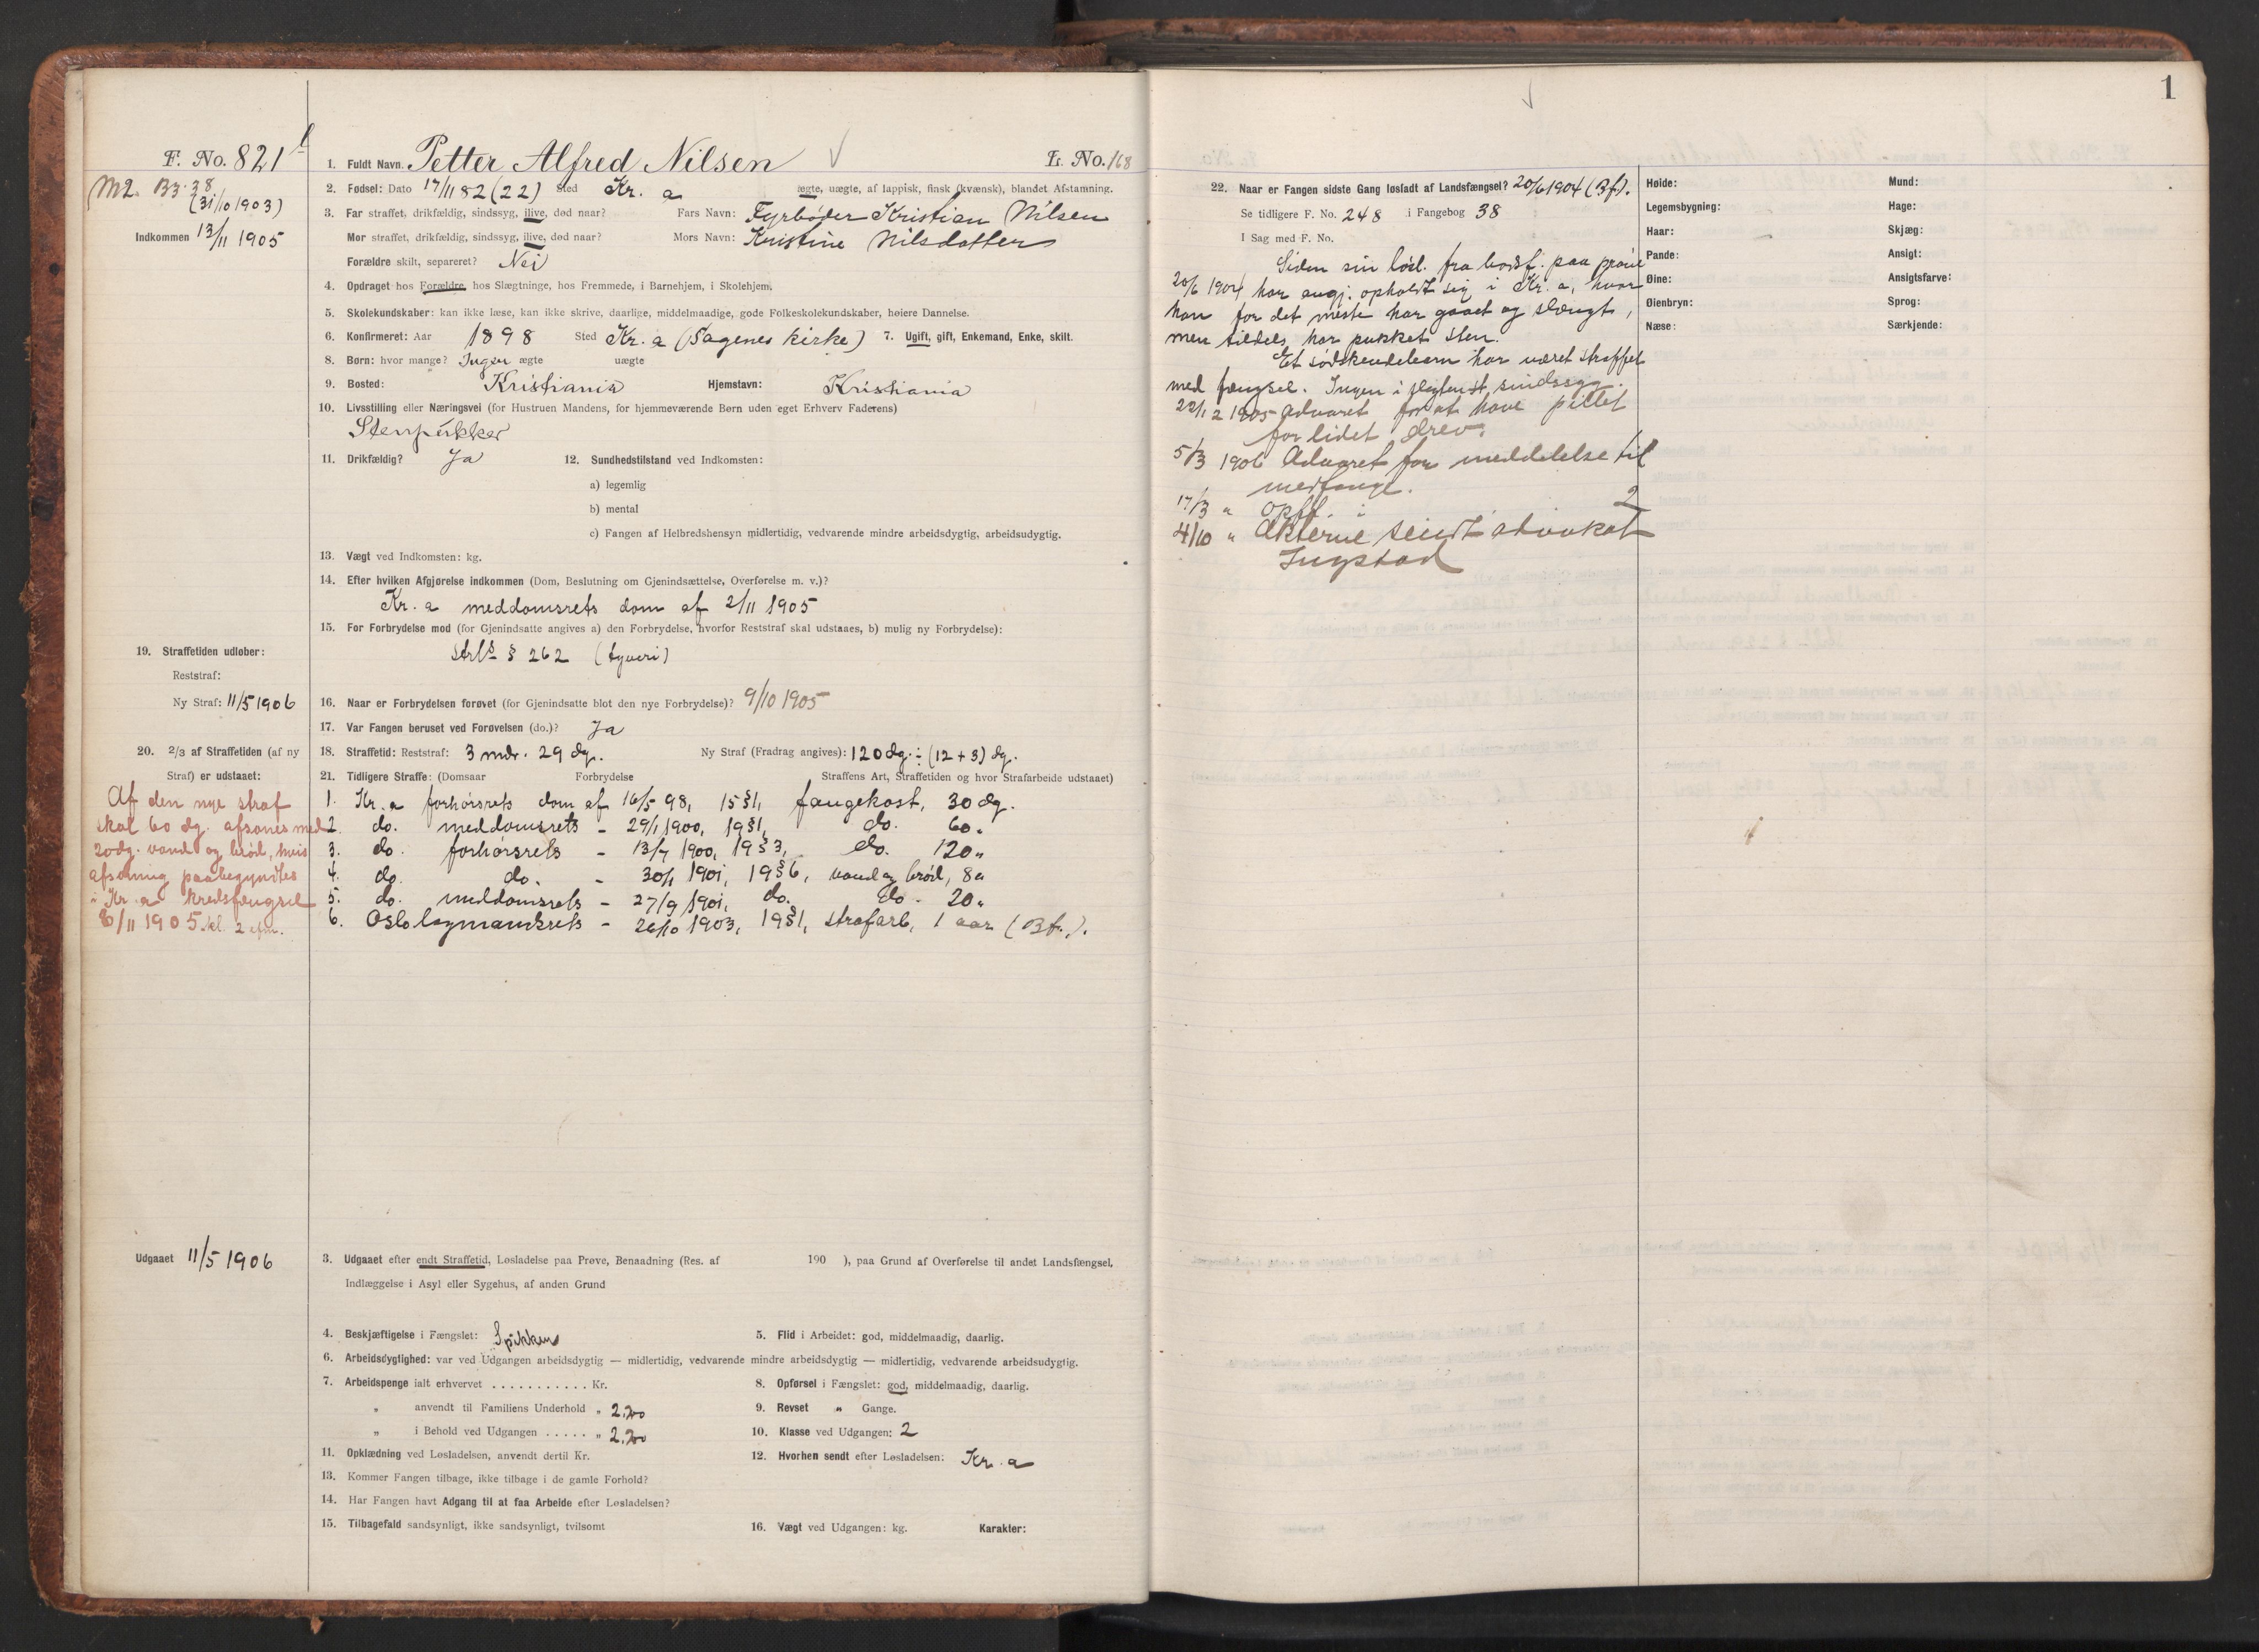 1
F. No. 821
1. Fuldt Navn. Petter Alfred Nilsen
L. No. 168
M2. B3. 38
(31/10 1903)
Indkommen 13/11 1905
2. Fødsel: Dato 17/11 82 (22) Sted Kr.a ægte, uægte, af lappisk, finsk (kvænsk), blandet Afstamning.
3. Far straffet, drikfældig, sindssyg, ilive, død naar? Fars Navn: Fyrbøder Kristian Nilsen
Mor straffet, drikfældig, sindssyg, ilive, død naar? Mors Navn: Kristine Nilsdatter
Forældre skilt, separeret? Nei
4. Opdraget hos Forældre, hos Slægtninge, hos Fremmede, i Barnehjem, i Skolehjem.
5. Skolekundskaber: kan ikke læse, kan ikke skrive, daarlige, middelmaadige, gode Folkeskolekundskaber, høiere Dannelse.
6. Konfirmeret: Aar 1898 Sted Kr.a (Sagenes kirke) 7. Ugift, gift, Enkemand, Enke, skilt.
8. Børn: hvor mange? Ingen ægte uægte
9. Bosted: Kristiania Hjemstavn: Kristiania
10. Livsstilling eller Næringsvei (for Hustruen Mandens, for hjemmeværende Børn uden eget Erhverv Faderens)
Stenpukker
11. Drikfældig? Ja 12. Sundhedstilstand ved Indkomsten:
a) legemlig
b) mental
c) Fangen af Helbredshensyn midlertidig, vedvarende mindre arbeidsdygtig, arbeidsudygtig.
13. Vægt ved Indkomsten: kg.
14. Efter hvilken Afgjørelse indkommen (Dom, Beslutning om Gjenindsættelse, Overførelse m. v.)?
Kr.a meddomsrets dom af 2/11 1905
15. For Forbrydelse mod (for Gjenindsatte angives a) den Forbrydelse, hvorfor Reststraf skal udstaaes, b) mulig ny Forbrydelse):
strl. § 262 (tyveri)
19. Straffetiden udløber:
Reststraf:
Ny Straf: 11/5 1906
16. Naar er Forbrydelsen forøvet (for Gjenindsatte blot den nye Forbrydelse)? 9/10 1905
17. Var Fangen beruset ved Forøvelsen (do.)? Ja
20. 2/3 af Straffetiden (af ny
Straf) er udstaaet:
18. Straffetid: Reststraf: 3 mdr. 29 dg. Ny Straf (Fradrag angives): 120 dg. ÷ (12 + 3) dg.
21. Tidligere Straffe: (Domsaar Forbrydelse Straffens Art, Straffetiden og hvor Strafarbeide udstaaet)
Af den nye straf
skal 60 dg. afsones med
20 dg. vand og brød, hvis
afsoning paabegyndtes
i Kr.a kredsfængsel
8/11 1905 kl. 2 efm.
1. Kr.a forhørsrets dom af 16/5 98, 15 § 1, fangekost, 30 dg.
2. do. meddomsrets - 29/1 1900, 19 § 1, do. 60 "
3. do. forhørsrets - 13/7 1900, 19 § 3, do. 120 "
4. do. do. - 30/1 1901, 19 § 6, vand og brød, 8 "
5. do. meddomsrets - 27/9 1901, do. do. 20 "
6. Oslo lagmandsrets - 26/10 1903, 19 § 1, strafarb, 1 aar (Bf.).
Udgaaet 11/5 1906
3. Udgaaet efter endt Straffetid, Løsladelse paa Prøve, Benaadning (Res. af 190 ), paa Grund af Overførelse til andet Landsfængsel,
Indlæggelse i Asyl eller Sygehus, af anden Grund
4. Beskjæftigelse i Fængslet: Spikken 5. Flid i Arbeidet: god, middelmaadig, daarlig.
6. Arbeidsdygtighed: var ved Udgangen arbeidsdygtig — midlertidig, vedvarende mindre arbeidsdygtig — midlertidig, vedvarende arbeidsudygtig.
7. Arbeidspenge ialt erhvervet . . . . . . . . . . . Kr. 8. Opførsel i Fængslet: god, middelmaadig, daarlig.
„ anvendt til Familiens Underhold „ 2.20 9. Revset " Gange.
„ i Behold ved Udgangen . . . . . „ 2.20 10. Klasse ved Udgangen: 2
11. Opklædning ved Løsladelsen, anvendt dertil Kr. 12. Hvorhen sendt efter Løsladelsen: Kr.a
13. Kommer Fangen tilbage, ikke tilbage i de gamle Forhold?
14. Har Fangen havt Adgang til at faa Arbeide efter Løsladelsen?
15. Tilbagefald sandsynligt, ikke sandsynligt, tvilsomt 16. Vægt ved Udgangen: kg. Karakter:
22. Naar er Fangen sidste Gang løsladt af Landsfængsel? 20/6 1904 (Bf).
Se tidligere F. No. 248 i Fangebog 38
I Sag med F. No.
Siden sin løsl. fra bodsf. paa prøve
20/6 1904 har angj. opholdt sig i Kr.a, hvor
han for det meste har gaaet og slængt,
men tildels har pukket sten.
Et sødskendebarn har været straffet
med fængsel. Ingen i slegten st. sindssyg.
22/12 1905 Advaret for at have pillet
for lidet drev.
5/3 1906 Advaret for meddelelse til
medfange.
17/3 " opfl. i 2
4/10 " Akterne sendt advokat
Ingstad
Høide: Mund:
Legemsbygning: Hage:
Haar: Skjæg:
Pande: Ansigt:
Øine: Ansigtsfarve:
Øienbryn: Sprog:
Næse: Særkjende: